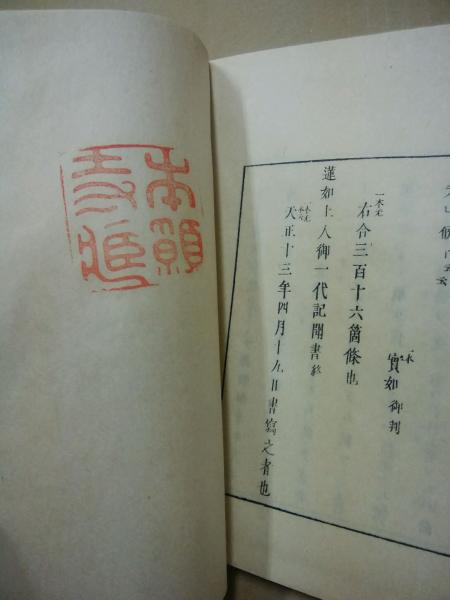 候云云
一本
實如御判
一本无
右合三百十六箇條也
蓮如上人御一代記聞書終
天正十三年四月十九日書寫之者也
本願
寺